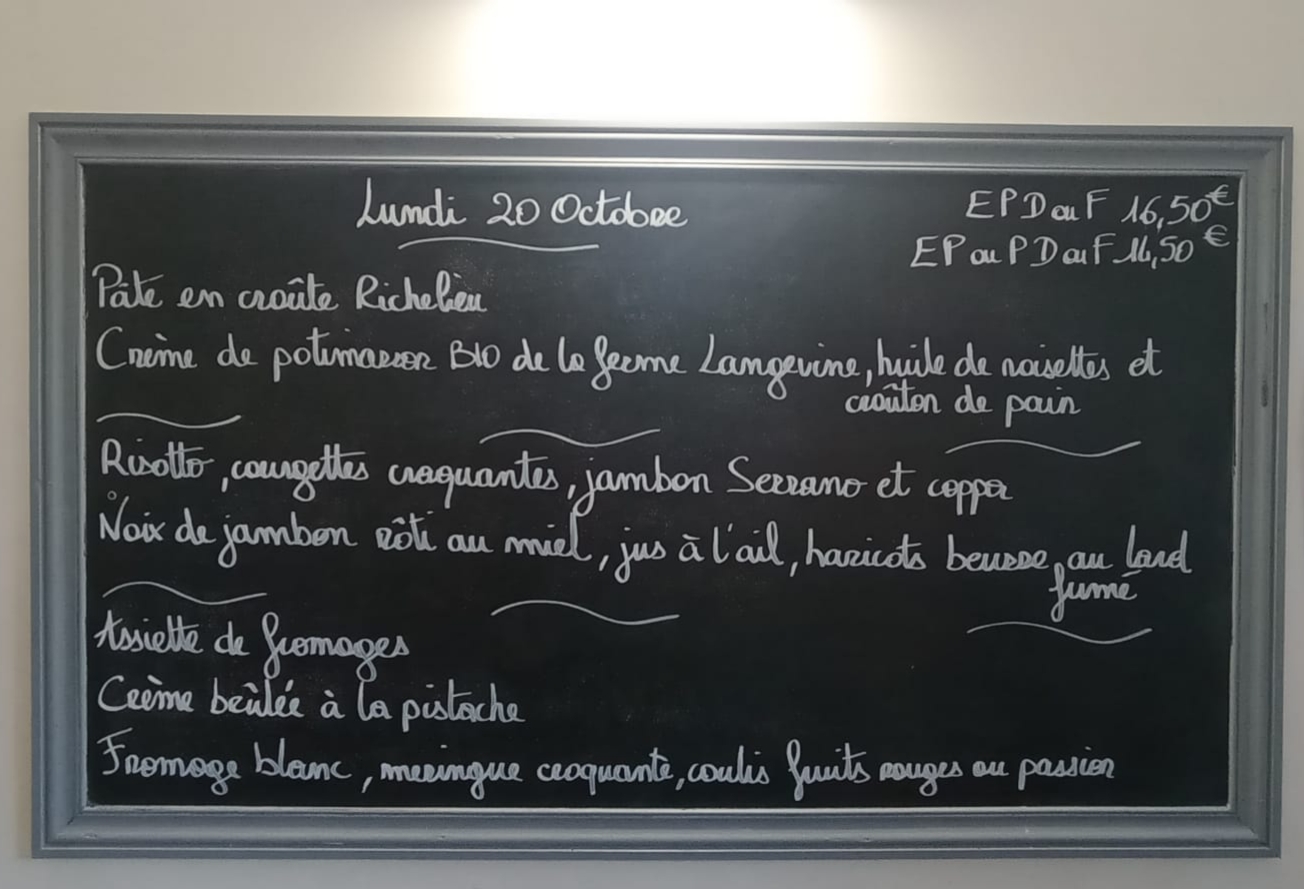 Lundi 20 Octobre
E P D ou F 16,50€
EP ou P D ou F 14,50€
Pâté en croûte Richelieu
Crème de potimarron BIO de la ferme Langevine, huile de noisettes et
croûton de pain
Risotto, courgettes craquantes, jambon Serrano et coppa
Noix de jambon rôti au miel, jus à l'ail, haricots beurre, au lard
fumé
Assiette de fromages
Crème brûlée à la pistache
Fromage blanc, meringue croquante, coulis fruits rouges ou passion